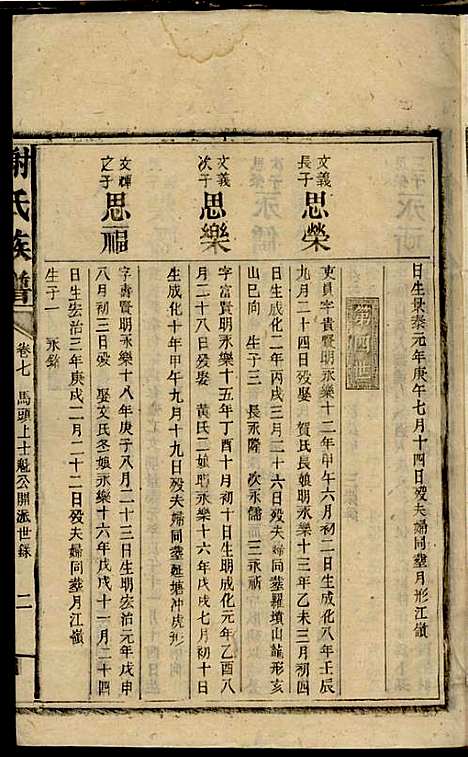 日生景泰元年庚午七月十四日歿夫婦同塟月形江嶺
第四世
文義長子
思榮
吏員字貴賢明永樂十二年甲午六月初二日生成化八年壬辰
九月二十四日歿娶 賀氏長娘明永樂十三年乙未三月初四
日生成化二年丙戌三月二十六日歿夫婦同塟羅墳山龍形亥
山巳向 生子三 長永隆 次永儒 三永祈
文義次子
思樂
字富賢明永樂十五年丁酉十月初十日生明成化元年乙酉八
月二十八日歿娶 黃氏二娘明永樂十六年戊戌七月初十日
生成化十年甲午九月十九日歿夫婦同塟延塘冲虎形
文輝之子
思福
字壽賢明永樂十八年庚子八月二十三日生明宏治元年戊申
八月初三日歿 娶文氏冬娘永樂十六年戊戌十一月二十四
日生宏治三年庚戌二月二十二日歿夫婦同塟月江嶺
生子一 永銘
謝氏族譜
卷七 馬頭上士魁公開派世錄 二